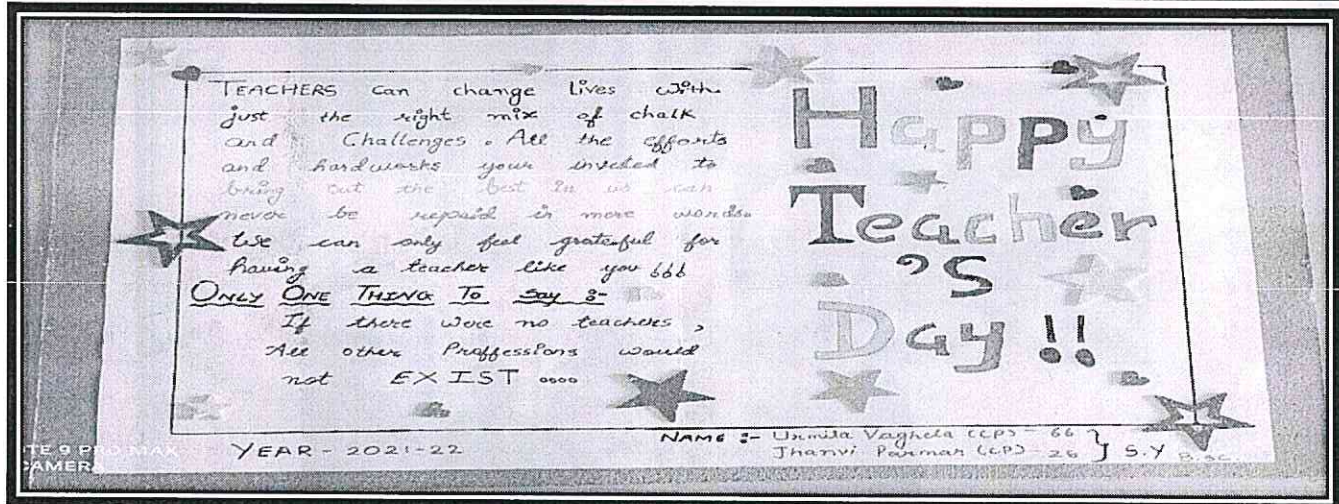 TEACHERS can change lives with
just the right mix of chalk
and Challenges. All the efforts
and hardworks your invested to
bring out the best in us can
never be repaid in mere words.
We can only feel grateful for
having a teacher like you
ONLY ONE THING TO Say :-
If there were no teachers,
All other Proffessions would
not EXIST ....
Happy
Teacher
'S
Day !!
YEAR - 2021-22
NAME :- Urmila Vaghela (CP) - 66
Jhanvi Parmar (CP) - 26 } S.Y B.Sc.
TE 9 PRO MAX
CAMERA